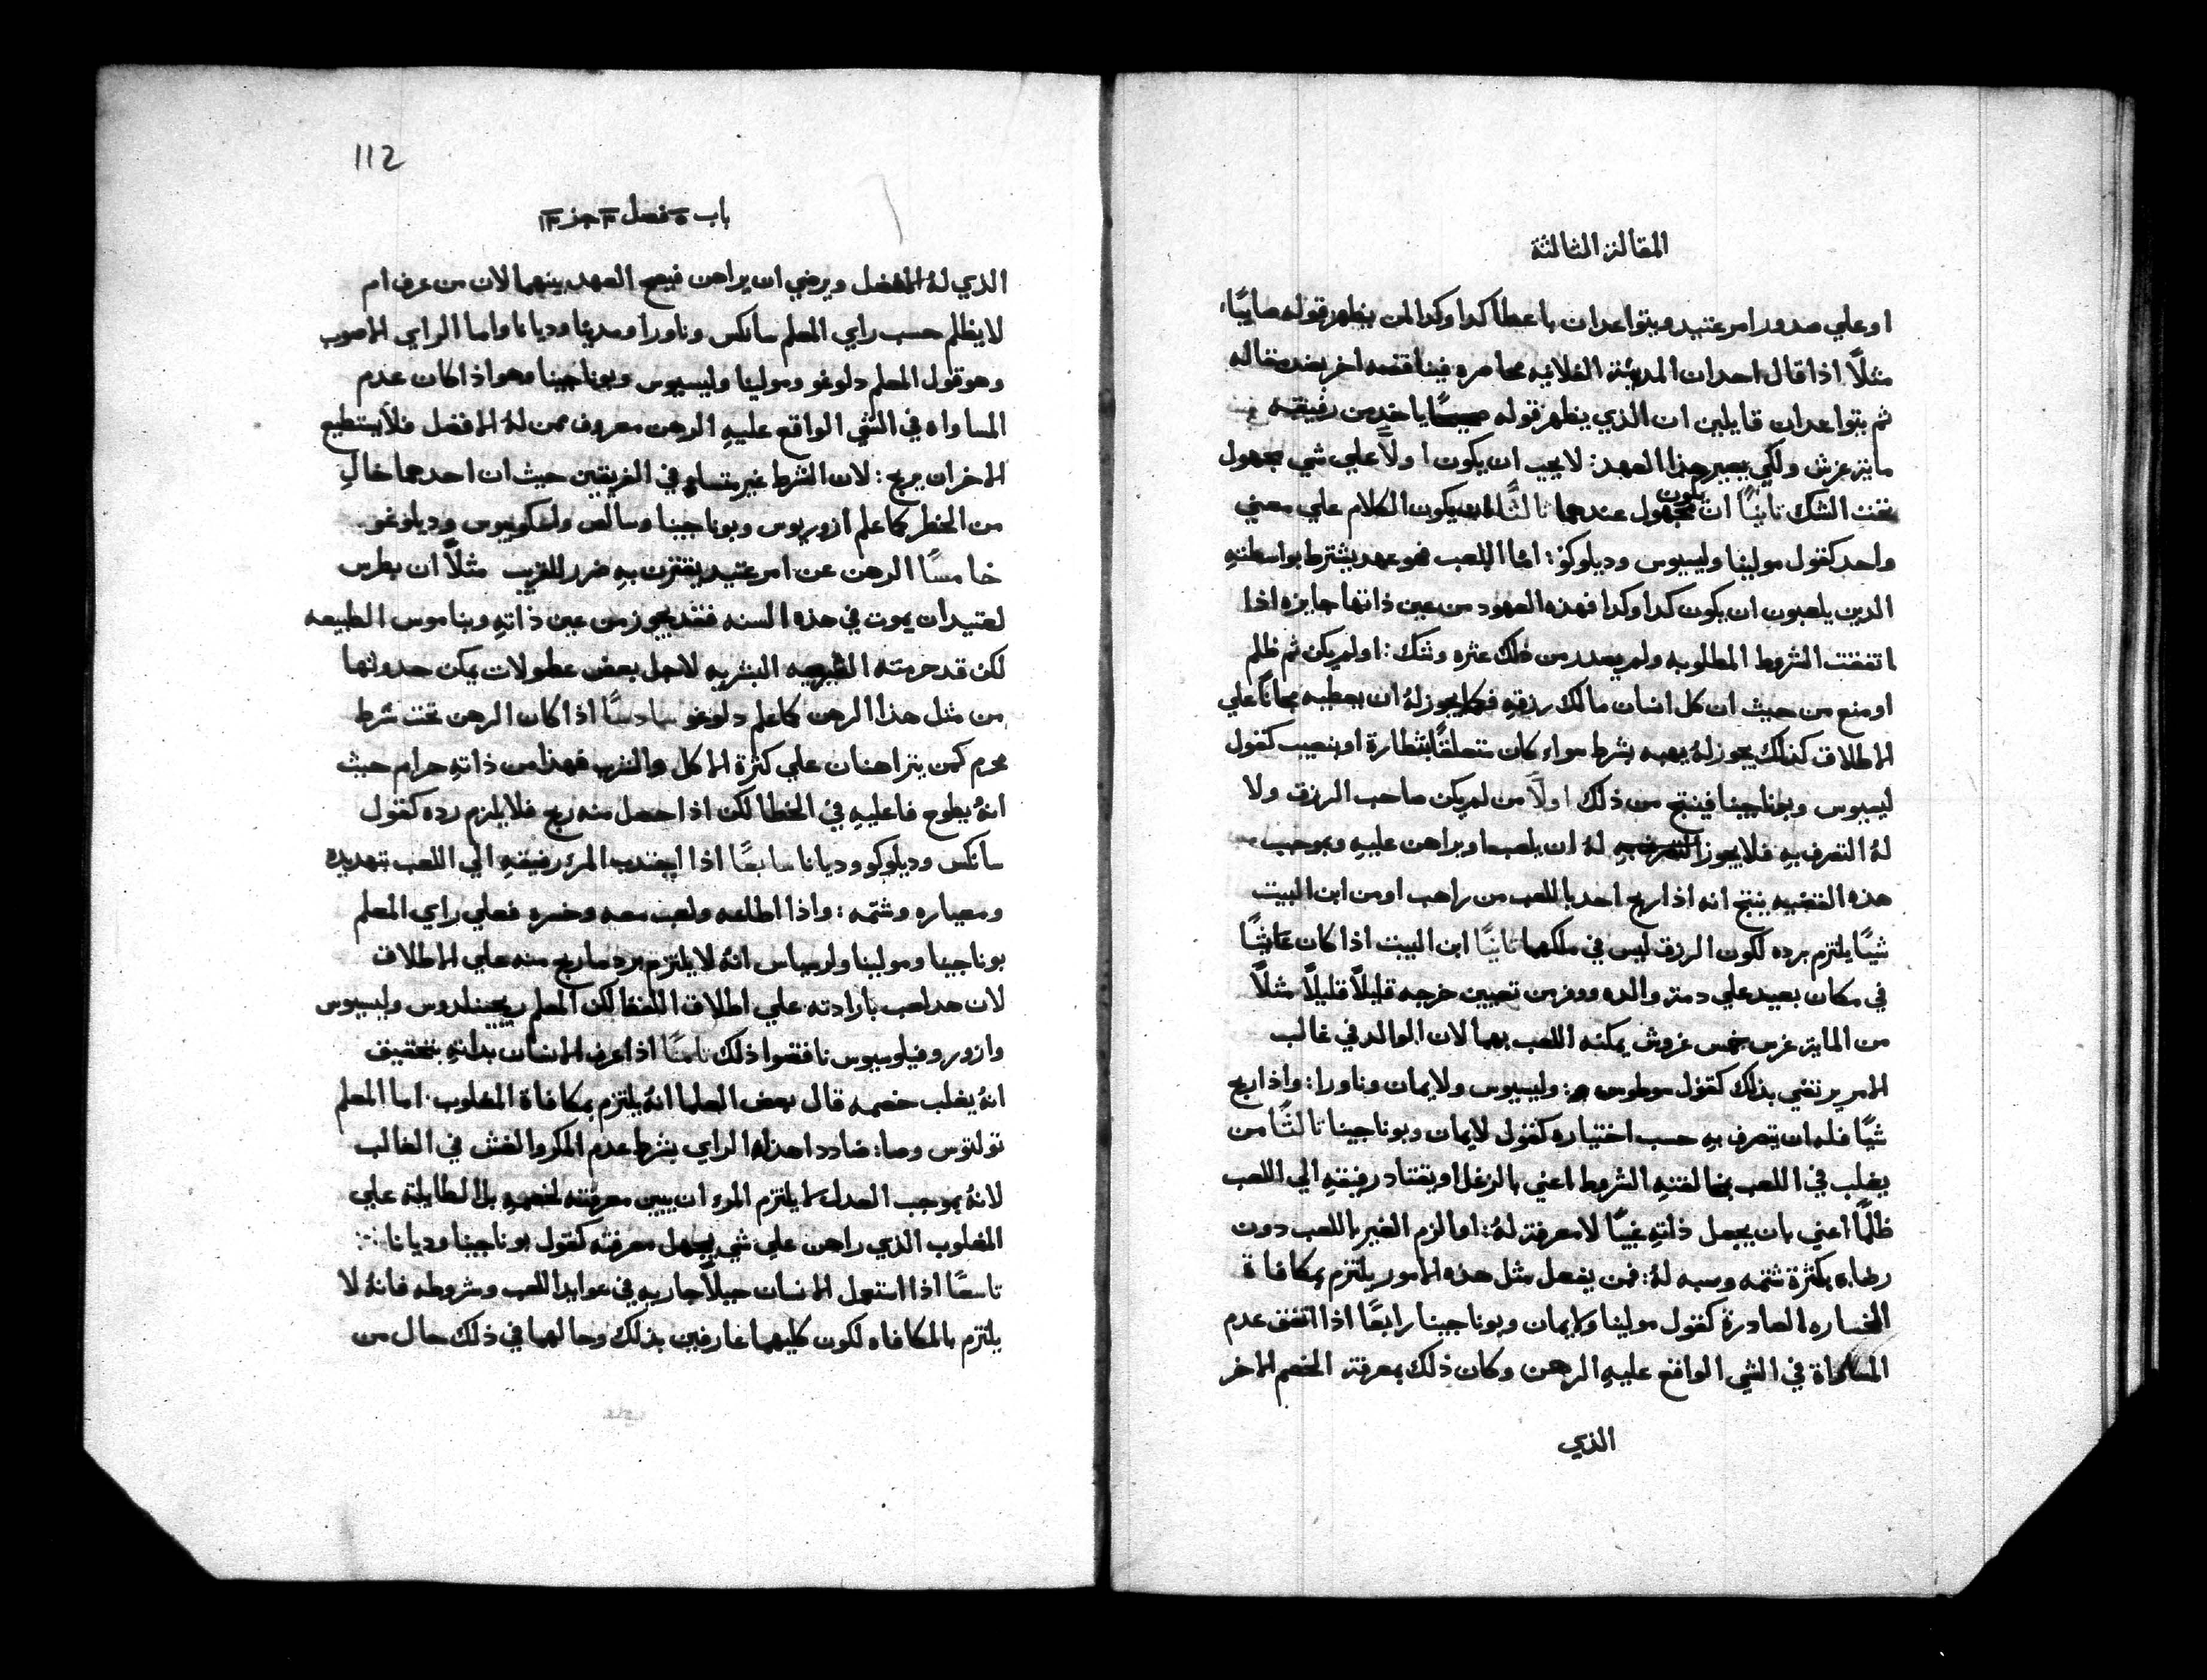 المقالة الثالثة
او علي صدور امر عتيد ويتواعدان باعطا كدا وكدا لمن يظهر قوله صايبًا
مثلًا اذا قال احد ان المدينة الفلانيه محاصره فيناقضه اخر بضد مقاله
ثم يتواعدان قايلين ان الذي يظهر قوله ياخد من رفيقه
ماية غرش ولكي يصير هذا العهد: لا يجب ان يكون اولًا علي شي مجهول
تحت الشك ثانيًا ان يكون مجهول عندهما ثالثًا ان يكون الكلام علي معني
واحد كقول مولينا وليسيوس وديلوكو: اما اللعب فهو عهد يشترط بواسطتهِ
الدين يلعبون ان يكون كدا وكدا فهذه العهود من عين ذاتها جايزه اذا
اتفقت الشروط المطلوبه ولم يصدر من ذلك عثره وشك: او لم يكن ثم ظلم
او منع من حيث ان كل انسان مالك رزقهِ فكما يجوز لهُ ان يعطيه مجانًا علي
الاطلاق كذلك يجوز لهُ يهبه بشرط سواء كان متعلقًا بشطارة او بنصيب كقول
ليسيوس وبوناجينا فينتج من ذلك اولًا من لم يكن صاحب الرزق ولا
لهُ التصرف بهِ فلا يجوز لهُ ان يلعب او يراهن عليهِ وبموجب
هذه القضيه ينتج انه اذا ربح احد باللعب من راهب او من ابن البيت
شيًا يلتزم برده لكون الرزق ليس في ملكهما ثانيًا ابن البيت اذا كان عايشًا
في مكان بعيد علي دمة والده ووفر من تعيين خرجه قليلًا قليلًا مثلًا
من الماية غرش خمس غروش يمكنه اللعب بهما لان الوالد في غالب
الامر يرتضي بذلك كقول سوطوس: وليسيوس ولايمان وناورا: واذا ربح
شيًا فله ان يتصرف بهِ حسب اختياره كقول لايمان وبوناجينا ثالثًا من
يغلب في اللعب بمخالفتهِ الشروط اعني بالزغل او يقتاد رفيقهِ الي اللعب
ظلمًا اعني بان يجعل ذاتهِ غبيًا لا معرفة لهُ: او الزم الغير باللعب دون
رضاه بكثرة شتمه وسبه لهُ: فمن يفعل مثل هذه الامور يلتزم بمكافاة
الخساره الصادرة كقول مولينا ولايمان وبوناجينا رابعًا اذا اتفق عدم
المساواة في الشي الواقع عليهِ الرهن وكان ذلك بمعرفة الخصم الاخر
الذي
112
باب ٥ فصل ٣ جز ١٣
الذي لهُ الافضل ويرضي ان يراهن فيصح العهد بينهما لان من عرف ام
لا يظلم حسب راي المعلم سانكس وناورا ومدينا وديانا واما الراي الاصوب
وهو قول المعلم دلوغو ومولينا وليسيوس وبوناجينا وهو اذا كان عدم
المساواه في الشي الواقع عليهِ الرهن معروف ممن لهُ الافضل فلا يستطيع
الاخر ان يربح: لان الشرط غير متساوٍ في الفريقين حيث ان احدهما خالٍ
من الخطر كما علم ازوريوس وبوناجينا وسالس ولسكوبيوس وديلوغو
خامسًا الرهن عن امر عتيد يقترن بهِ ضرر للقريب مثلًا ان بطرس
لعتيد ان يموت في هذه السنه فقد يجوز من عين ذاتهِ وبناموس الطبيعه
لكن قد حرمته الشريعه البشريه لاجل بعض عطولات يمكن حدوثها
من مثل هذا الرهن كما علم دلوغو سادسًا اذا كان الرهن تحت شرط
محرم كمن يتراهنان علي كثرة الاكل والشرب فهذا من ذاتهِ حرام حيث
انهُ يطوح فاعليهِ في الخطا لكن اذا حصل منه ربح فلا يلزم رده كقول
سانكس وديلوكو وديانا سابعًا اذا اجتدب المرء رفيقهِ الي اللعب بتهديده
ومعياره وشتمه: واذا اطاعه ولعب معه وخسره فعلي راي المعلم
بوناجينا ومولينا ولريباس انهُ لا يلتزم برد ما ربح منه علي الاطلاق
لان هذا لعب بارادته علي اطلاق اللفظ لكن المعلم ريجينلدوس وليسيوس
وازور وفيلوسيوس ناقضوا ذلك ثامنًا اذا عرف الانسان بداتهِ بتحقيق
انهُ يغلب خصمه قال بعض العلما انهُ يلتزم بمكافاة المغلوب. اما المعلم
تولتوس وصا: ضاددا هذا الراي بشرط عدم المكر والغش في الغالب
لانهُ بموجب العدل لا يلتزم المرء ان يبين معرفته لخصمهِ بل الطايلة علي
المغلوب الذي راهن علي شي يجهل معرفته كقول بوناجينا وديانا:
تاسعًا اذا استعمل الانسان حيلًا جاريه في عوايد اللعب وشروطه فانهُ لا
يلتزم بالمكافاه لكون كليهما عارفين بذلك وحالهما في ذلك حال من